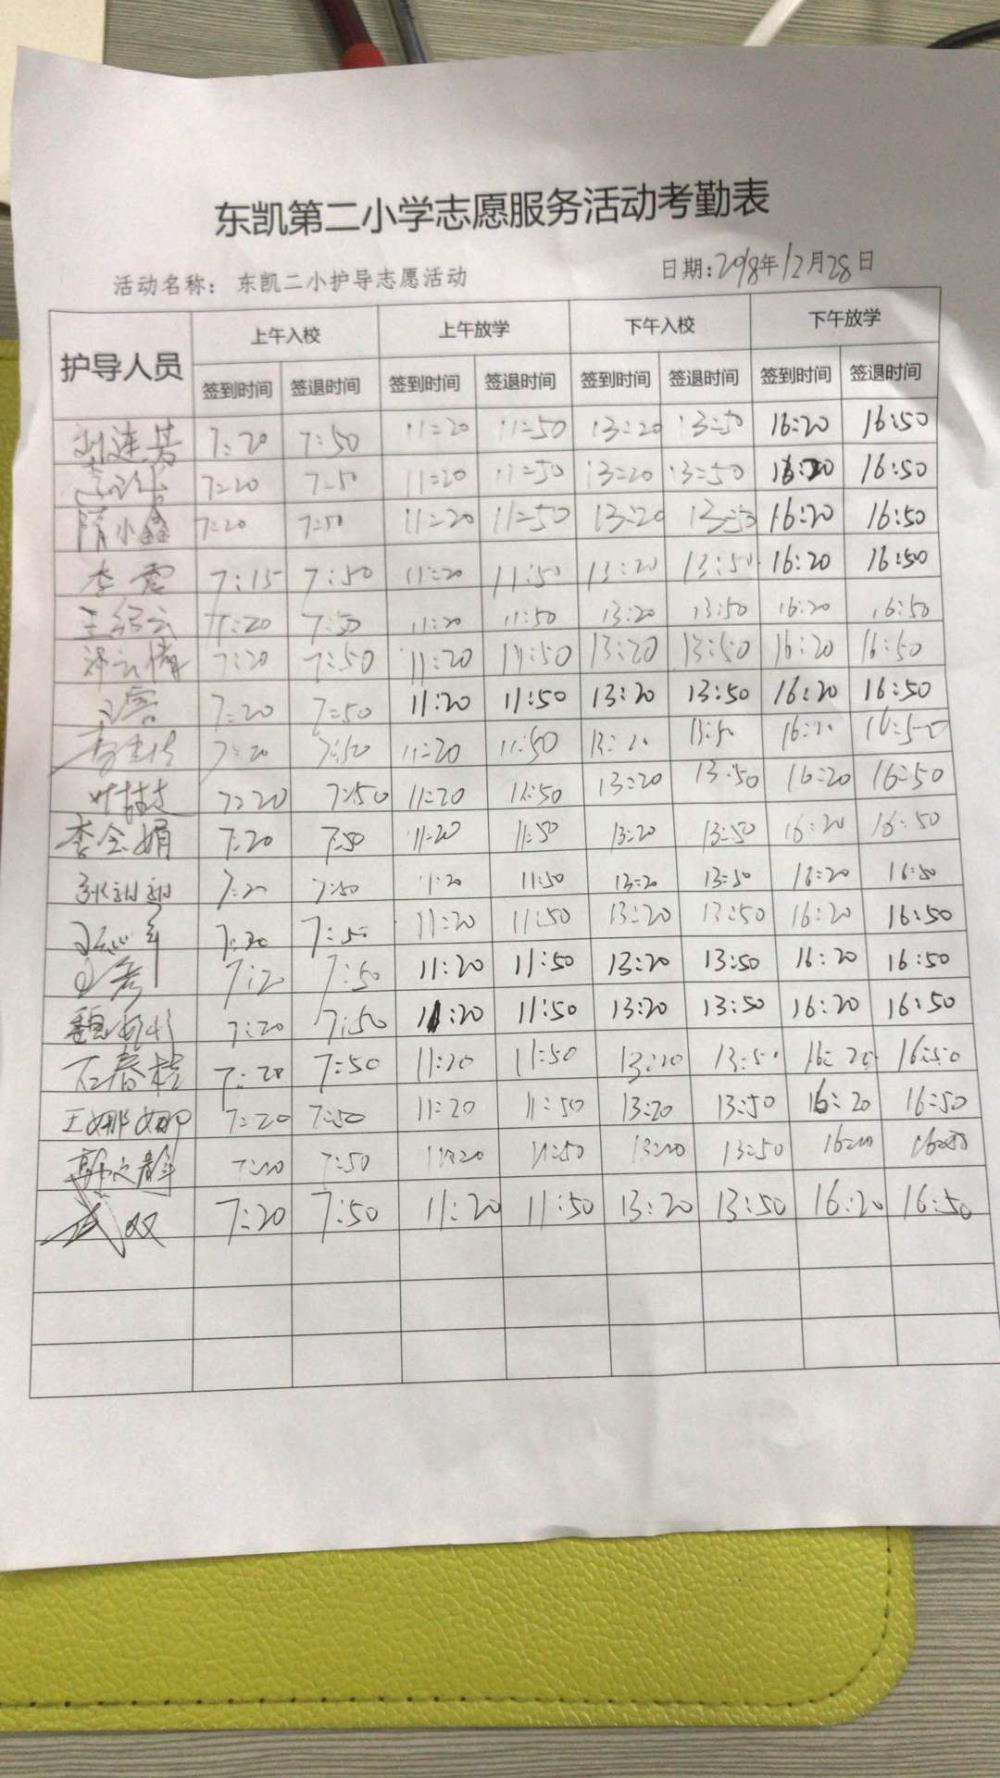 东凯第二小学志愿服务活动考勤表
活动名称：东凯二小护导志愿活动 日期：2018年12月28日
护导人员 上午入校 上午放学 下午入校 下午放学
签到时间 签退时间 签到时间 签退时间 签到时间 签退时间 签到时间 签退时间
7:20 7:50 11:20 11:50 13:20 13:50 16:20 16:50
7:20 7:50 11:20 11:50 13:20 13:50 16:20 16:50
隋小鑫 7:20 7:50 11:20 11:50 13:20 13:50 16:20 16:50
李雪 7:15 7:50 11:20 11:50 13:20 13:50 16:20 16:50
7:20 7:50 11:20 11:50 13:20 13:50 16:20 16:50
7:20 7:50 11:20 11:50 13:20 13:50 16:20 16:50
7:20 7:50 11:20 11:50 13:20 13:50 16:20 16:50
7:20 7:50 11:20 11:50 13:20 13:50 16:20 16:50
7:20 7:50 11:20 11:50 13:20 13:50 16:20 16:50
李会娟 7:20 7:50 11:20 11:50 13:20 13:50 16:20 16:50
7:20 7:50 11:20 11:50 13:20 13:50 16:20 16:50
7:20 7:50 11:20 11:50 13:20 13:50 16:20 16:50
7:20 7:50 11:20 11:50 13:20 13:50 16:20 16:50
7:20 7:50 11:20 11:50 13:20 13:50 16:20 16:50
石春梅 7:20 7:50 11:20 11:50 13:20 13:50 16:20 16:50
王娜娜 7:20 7:50 11:20 11:50 13:20 13:50 16:20 16:50
7:20 7:50 11:20 11:50 13:20 13:50 16:20 16:50
武双 7:20 7:50 11:20 11:50 13:20 13:50 16:20 16:50